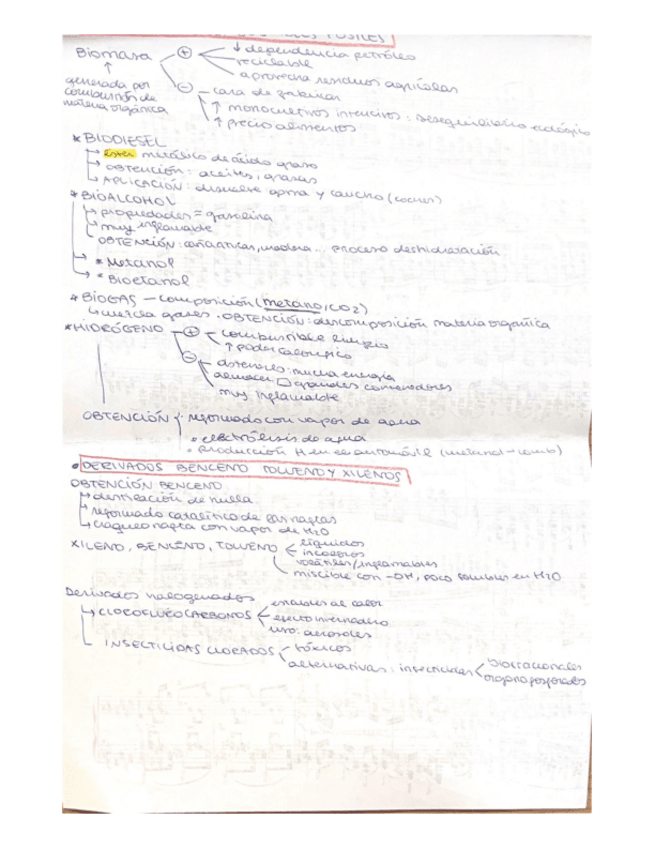 FÓSILES
Biomasa ⊕ ↓ dependencia petróleo
reciclable
aprovecha residuos agrícolas
↑
generada por combustión de materia orgánica
⊖ cara de fabricar
↑ monocultivos intensivos: desequilibrio ecológico
↑ precio alimentos
* BIODIESEL
↳ ester metílico de ácido graso
↳ OBTENCIÓN: aceites, grasas
↳ APLICACIÓN: disuelve goma y caucho (coches)
* BIOALCOHOL
↳ propiedades = gasolina
↳ muy inflamable
OBTENCIÓN: caña, madera... proceso deshidratación
↳ * Metanol
↳ * Bioetanol
* BIOGAS — composición (metano, CO2)
↳ mezcla gases · OBTENCIÓN: descomposición materia orgánica
* HIDRÓGENO ⊕ combustible limpio
↑ poder calorífico
⊖ obtenerlo: mucha energía
almacen: □ grandes contenedores
muy inflamable
OBTENCIÓN · reformado con vapor de agua
• electrólisis de agua
• producción H en el automóvil (metanol → comb)
• DERIVADOS BENCENO TOLUENO Y XILENOS
OBTENCIÓN BENCENO
↳ destilación de hulla
↳ reformado catalítico de las naftas
↳ craqueo nafta con vapor de H2O
XILENO, BENCENO, TOLUENO líquidos
incoloros
volátiles/inflamables
miscible con -OH, poco solubles en H2O
Derivados halogenados
↳ CLOROFLUOROCARBONOS estables al calor
efecto invernadero
uso: aerosoles
INSECTICIDAS CLORADOS tóxicos
alternativas: insecticidas biorracionales
organofosforados